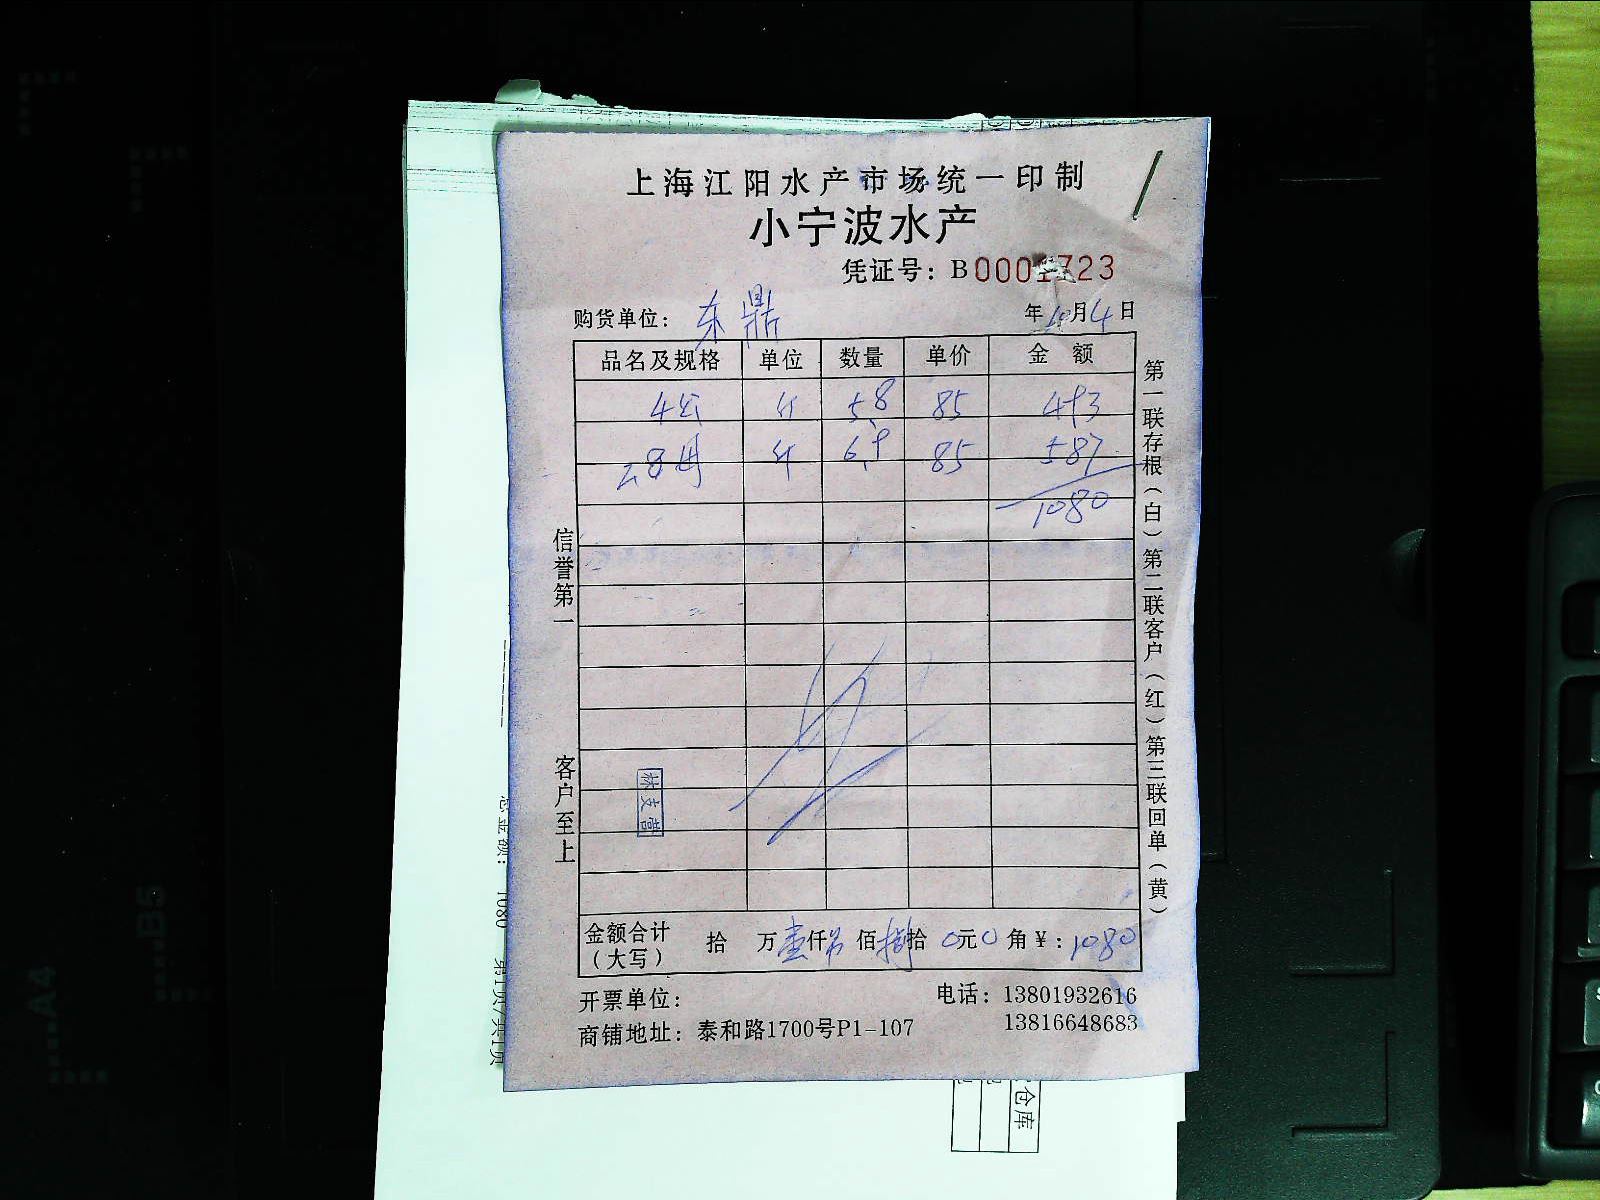 上海江阳水产市场统一印制
小宁波水产
凭证号：B 0001723
购货单位：东鼎 年10月4日
品名及规格 单位 数量 单价 金额
4公 斤 5.8 85 493
2.8母 斤 6.9 85 587
1080
信誉第一
客户至上
第一联存根（白）第二联客户（红）第三联回单（黄）
金额合计（大写） 拾 万壹仟 佰捌拾0元0角￥：1080
开票单位： 电话：13801932616
商铺地址：泰和路1700号P1-107 13816648683
总金额： 1080 第1页/共1页
仓库
A4
B5